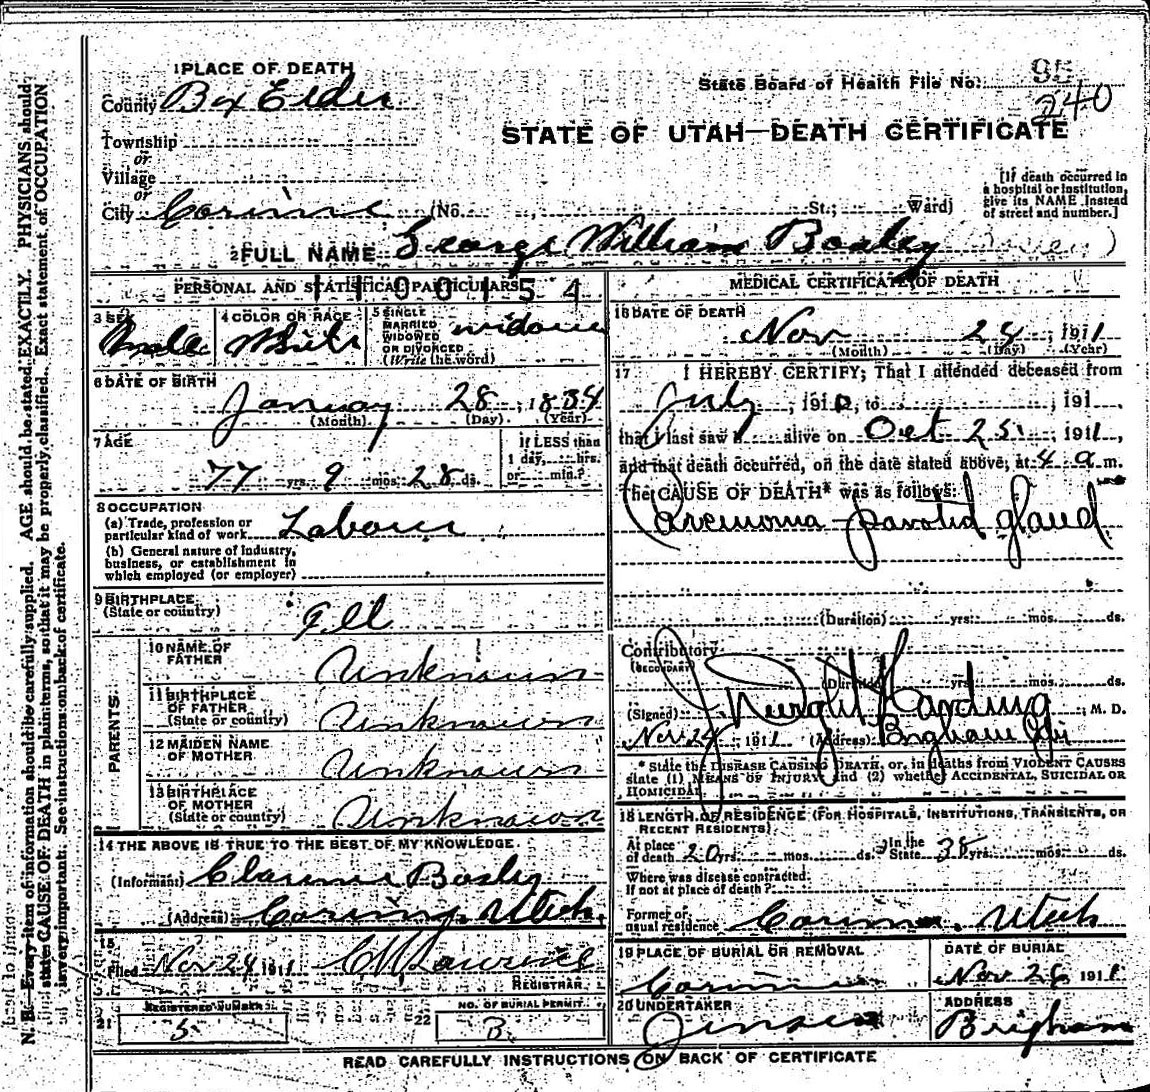 1 PLACE OF DEATH
County Box Elder
Township
or
Village
or
City Corinne (No. St.; Ward)
State Board of Health File No. 95
240
STATE OF UTAH—DEATH CERTIFICATE
[If death occurred in
a hospital or institution,
give its NAME instead
of street and number.]
2 FULL NAME George William Boxley
PERSONAL AND STATISTICAL PARTICULARS
1100154
3 SEX
Male
4 COLOR OR RACE
White
5 SINGLE
MARRIED
WIDOWED
OR DIVORCED
(Write the word)
widower
6 DATE OF BIRTH
January 28, 1834
(Month) (Day) (Year)
7 AGE
77 yrs. 9 mos. 28 ds.
If LESS than
1 day, hrs.
or min.?
8 OCCUPATION
(a) Trade, profession or
particular kind of work Laborer
(b) General nature of Industry,
business, or establishment in
which employed (or employer)
9 BIRTHPLACE
(State or country) Ill
PARENTS
10 NAME OF
FATHER Unknown
11 BIRTHPLACE
OF FATHER
(State or country) Unknown
12 MAIDEN NAME
OF MOTHER Unknown
13 BIRTHPLACE
OF MOTHER
(State or country) Unknown
14 THE ABOVE IS TRUE TO THE BEST OF MY KNOWLEDGE.
(Informant) Clarence Boxley
(Address) Corinne, Utah.
15
Filed Nov 24 1911
REGISTRAR
REGISTERED NUMBER
21 5
NO. OF BURIAL PERMIT
22 B
MEDICAL CERTIFICATE OF DEATH
16 DATE OF DEATH
Nov 24, 1911
(Month) (Day) (Year)
17 I HEREBY CERTIFY, That I attended deceased from
July, 1910, to , 191
that I last saw h alive on Oct 25, 1911,
and that death occurred, on the date stated above, at 4 a m.
The CAUSE OF DEATH* was as follows:
Carcinoma parotid gland
(Duration) yrs. mos. ds.
Contributory
(SECONDARY)
(Duration) yrs. mos. ds.
(Signed) J Dwight Harding, M. D.
Nov 24, 1911 (Address) Brigham City
* State the DISEASE CAUSING DEATH, or, in deaths from VIOLENT CAUSES
state (1) MEANS OF INJURY and (2) whether ACCIDENTAL, SUICIDAL OR
HOMICIDAL.
18 LENGTH OF RESIDENCE (FOR HOSPITALS, INSTITUTIONS, TRANSIENTS, OR
RECENT RESIDENTS)
At place
of death 20 yrs. mos. ds. In the
State 38 yrs. mos. ds.
Where was disease contracted
If not at place of death?
Former or
usual residence Corinne, Utah
19 PLACE OF BURIAL OR REMOVAL
Corinne
DATE OF BURIAL
Nov 26 1911
20 UNDERTAKER
Jensen
ADDRESS
Brigham
READ CAREFULLY INSTRUCTIONS ON BACK OF CERTIFICATE
N. B.—Every item of information should be carefully supplied. AGE should be stated EXACTLY. PHYSICIANS should
state CAUSE OF DEATH in plain terms, so that it may be properly classified. Exact statement of OCCUPATION
is very important. See instructions on back of certificate.